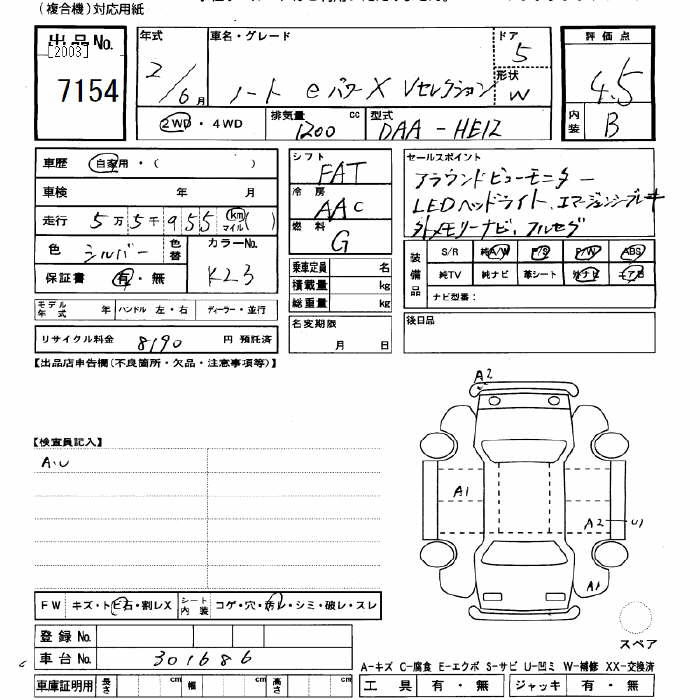 (複合機)対応用紙
出品No.
[2003]
7154
年式
2/6月
車名・グレード
ノート eパワーX Vセレクション
ドア
5
形状
W
評価点
4.5
内装
B
2WD・4WD
排気量
1200 cc
型式
DAA-HE12
車歴 自家用・( )
車検 年 月
走行 5万5千955 km マイル( )
色 シルバー
色替
カラーNo.
K23
保証書 有・無
モデル年式 年 ハンドル 左・右 ディーラー・並行
リサイクル料金 8190 円 預託済
シフト
FAT
冷房
AAC
燃料
G
乗車定員 名
積載量 kg
総重量 kg
名変期限
月 日
セールスポイント
アラウンドビューモニター
LEDヘッドライト、エマージェンシーブレーキ
外メモリーナビ、フルセグ
装備品
S/R 純A/W P/S P/W ABS
純TV 純ナビ 革シート 外ナビ エアB
ナビ型番:
後日品
【出品店申告欄(不良箇所・欠品・注意事項等)】
【検査員記入】
A・U
A2
A1
A2 U1
A1
スペア
FW キズ・トビ石・割レX シート内装 コゲ・穴・汚レ・シミ・破レ・スレ
登録No.
車台No. 301686
車庫証明用 長さ cm 幅 cm 高さ cm
A-キズ C-腐食 E-エクボ S-サビ U-凹ミ W-補修 XX-交換済
工具 有・無 ジャッキ 有・無